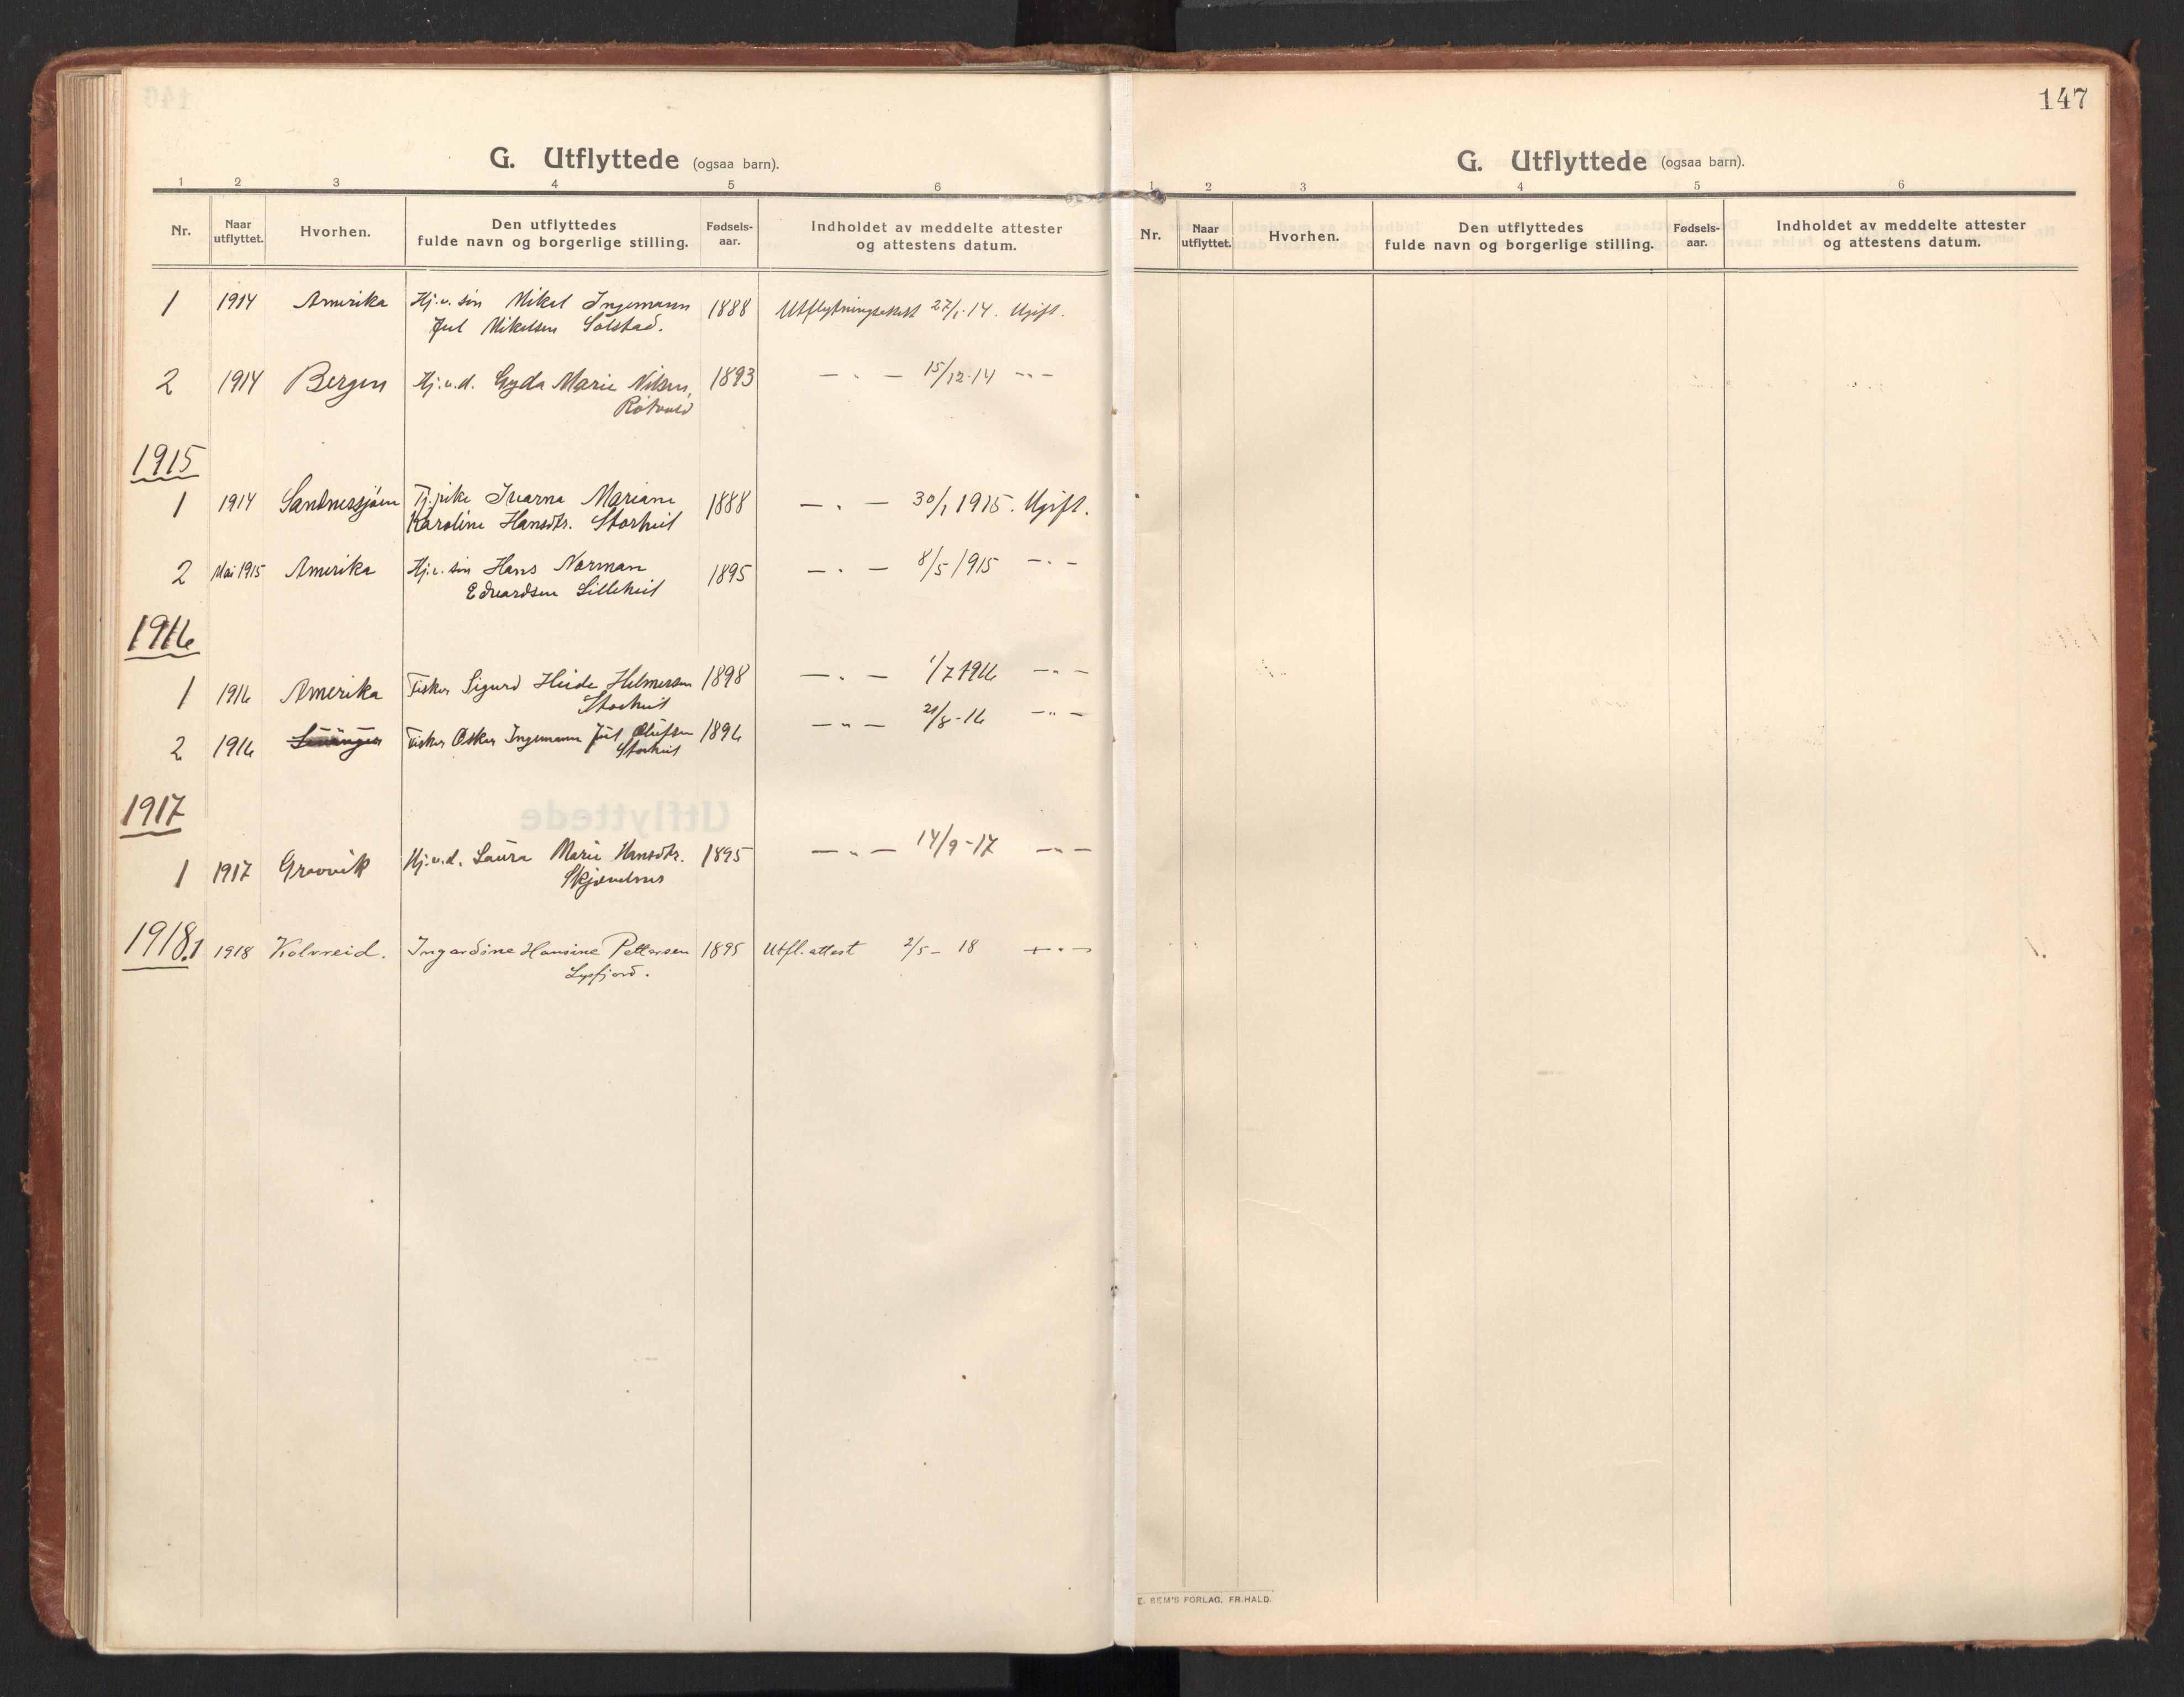 G. Utflyttede (ogsaa barn).
1 2 3 4 5 6
Nr. Naar utflyttet. Hvorhen. Den utflyttedes fulde navn og borgerlige stilling. Fødsels-aar. Indholdet av meddelte attester og attestens datum.
1 1914 Amerika Hj.v. søn Mikal Ingemann 1888 Utflytningsattest 27/1-14. Ugift.
Jul Mikalsen Solstad.
2 1914 Bergen Hj.v.d. Gyda Marie Nilsen, 1893 — " — 15/12-14 -"-
1915
1 1914 Sandnessjøen Tj.pike Ivarna Mariane 1888 — " — 30/1 1915. Ugift.
Karoline Hansdtr. Storheil
2 Mai 1915 Amerika Hj.v. søn Hans Norman 1895 — " — 8/5 1915 -"-
Edvardsen Lilleheil
1916
1 1916 Amerika Fisker Sigurd Heide Helmersen 1898 — " — 1/7 1916 -"-
Storheil
2 1916 Fisker Oskar Ingemann Jul Olufsen 1896 — " — 21/8-16 -"-
Storheil
1917
1 1917 Gravvik Hj.v.d. Laura Marie Hansdtr. 1895 — " — 14/9-17 -"-
1918. 1 1918 Kolvereid. Ingardine Hansine Pettersen 1895 Utfl. attest 2/5- 18 -"-
Lysfjord.
147
G. Utflyttede (ogsaa barn).
1 2 3 4 5 6
Nr. Naar utflyttet. Hvorhen. Den utflyttedes fulde navn og borgerlige stilling. Fødsels-aar. Indholdet av meddelte attester og attestens datum.
E. SEM'S FORLAG, FR.HALD.